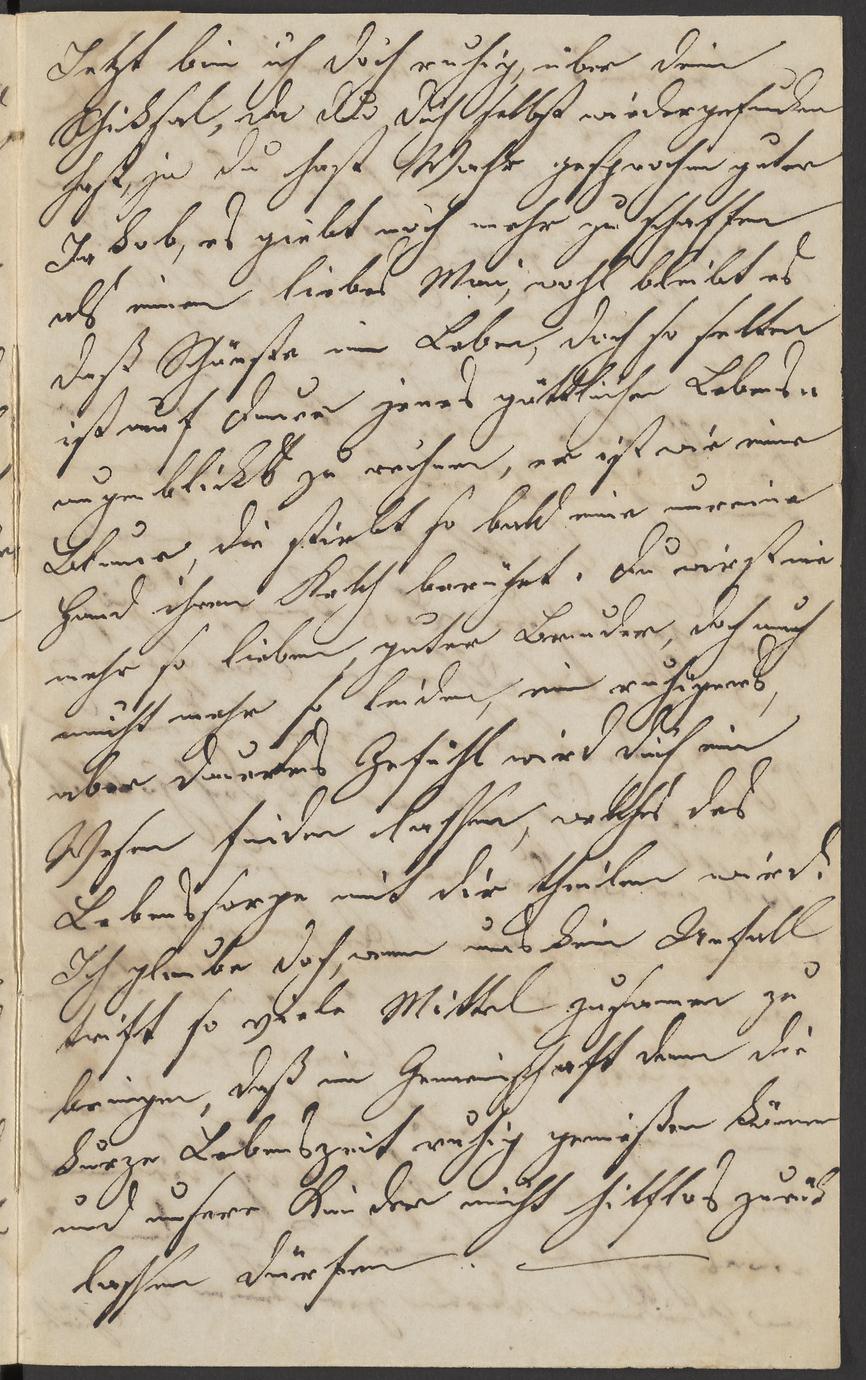 Jetzt bin ich doch ruhig, über dein
Schiksal, da du dich selbst wiedergefunden
hast, ja du hast Wahr gesprochen guter
Jakob, es giebt noch mehr zu schaffen
als einen liebes Mai, wohl bleibt es
daß Schönste im Leben, doch so selten
ist auf Dauer jenes göttlichen Lebens=
augenblicks zu rechnen, er ist wie eine
Blume, die stirbt so bald eine unreine
Hand ihren Kelch berührt. Du wirst nie
mehr so lieben, guter Bruder, doch auch
nicht mehr so leiden, ein ruhigeres,
aber dauerndes Gefühl wird dich ein
Wesen finden lassen, welches des
Lebenssorge mit dir theilen wird.
Ich glaube doch, wenn uns kein Unfall
trift so viele Mittel zusamen zu
bringen, daß in Gemeinschaft denn die
kurze Lebenszeit ruhig genießen können
und unsere Kinder nicht hilflos zurük
lassen dürfen.